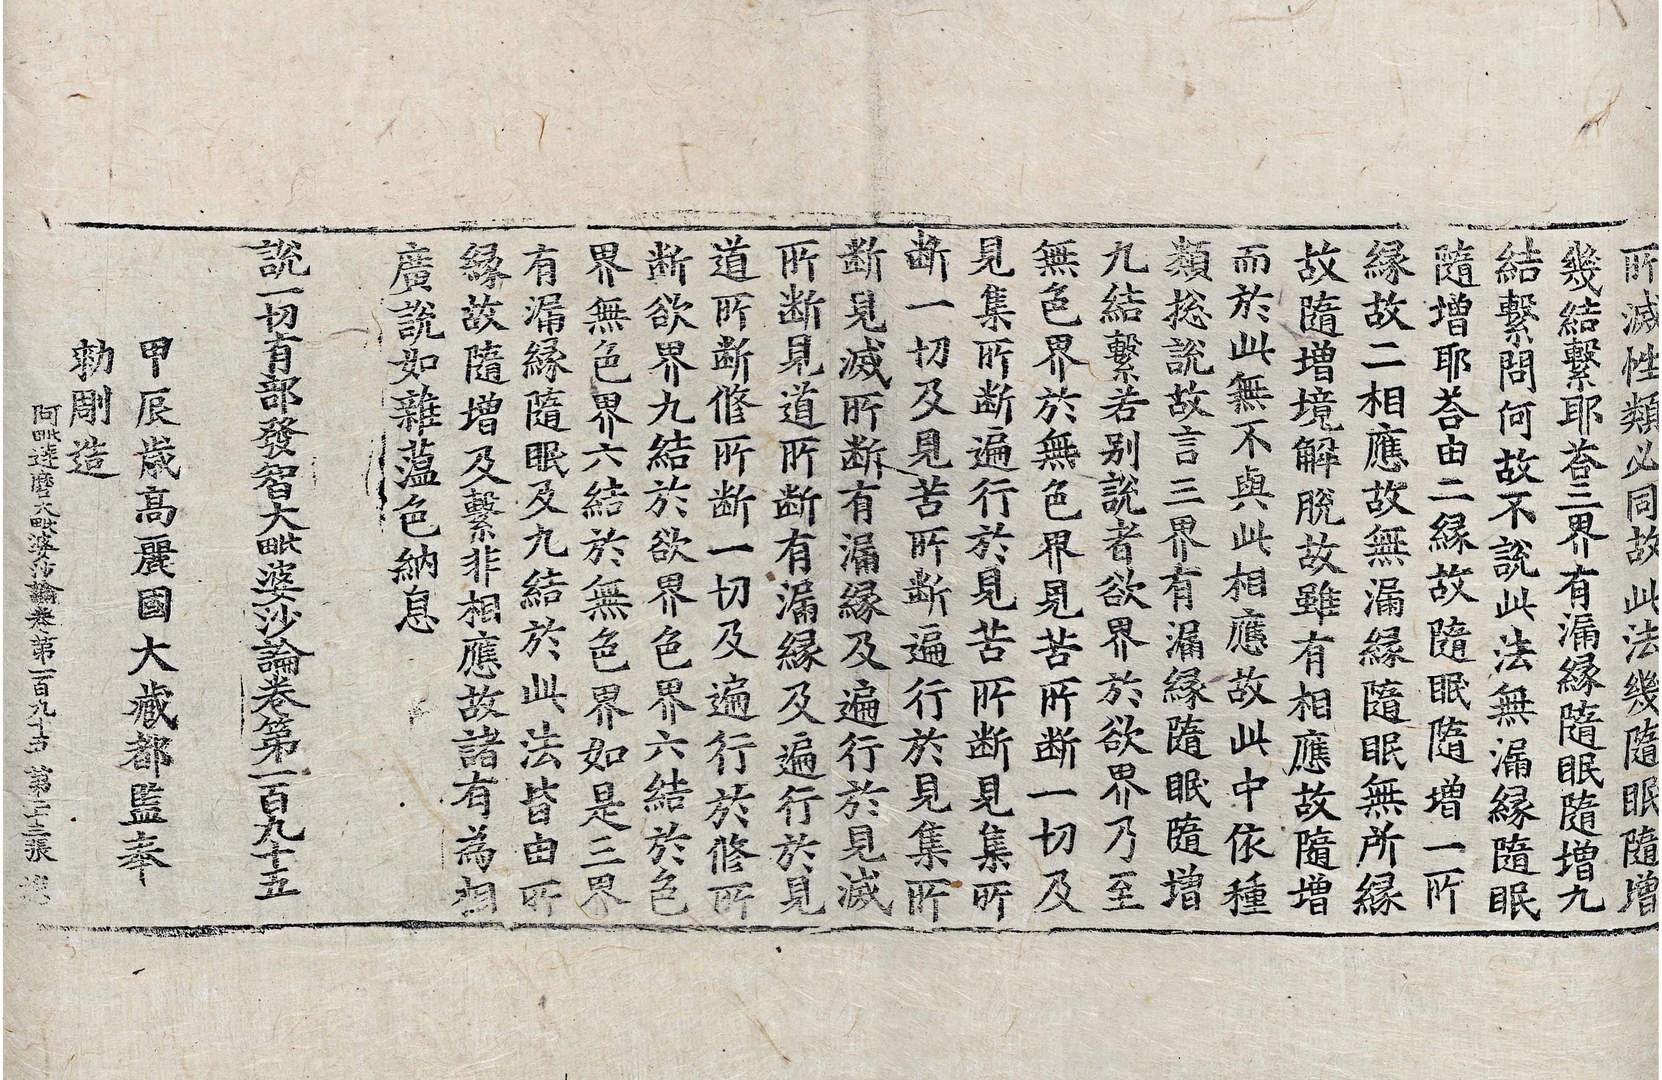 所滅性類必同故此法幾隨眠隨增
幾結繫耶荅三界有漏緣隨眠隨增九
結繫問何故不說此法無漏緣隨眠
隨增耶荅由二緣故隨眠隨增一所
緣故二相應故無漏緣隨眠無所緣
故隨增境解脫故雖有相應故隨增
而於此無不與此相應故此中依種
類捴說故言三界有漏緣隨眠隨增
九結繫若別說者欲界於欲界乃至
無色界於無色界見苦所断一切及
見集所断遍行於見苦所断見集所
断一切及見苦所断遍行於見集所
断見滅所断有漏緣及遍行於見滅
所断見道所断有漏緣及遍行於見
道所断修所断一切及遍行於修所
断欲界九結於欲界色界六結於色
界無色界六結於無色界如是三界
有漏緣隨眠及九結於此法皆由所
緣故隨增及繫非相應故諸有為相
廣說如雜蕰色納息
說一切有部發智大毗婆沙論卷第一百九十五
甲辰歲高麗國大藏都監奉
勑彫造
阿毗達磨大毗婆沙論卷第一百九十五 第二十三張